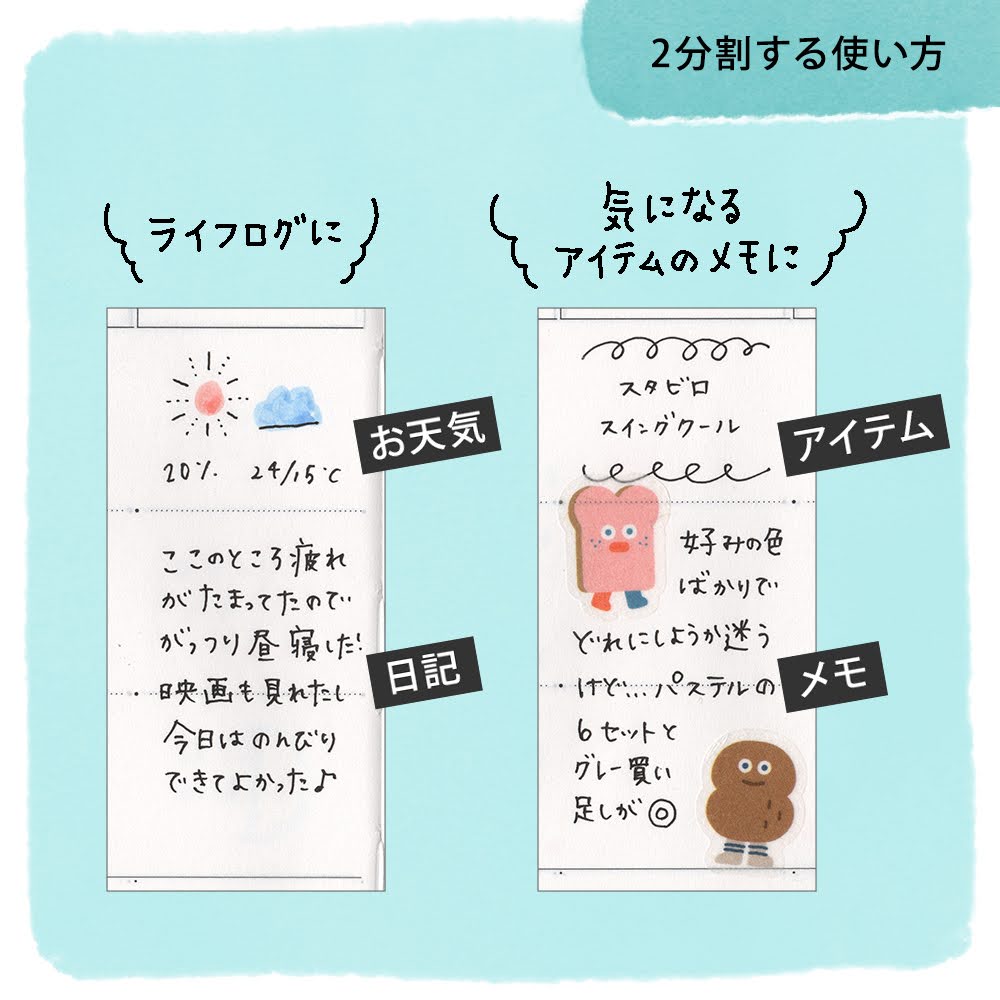 2分割する使い方
ライフログに
お天気
20% 24/15℃
ここのところ疲れ
がたまってたので
がっつり昼寝した!
日記
映画も見れたし
今日はのんびり
できてよかった♪
気になる
アイテムのメモに
スタビロ
スイングクール
アイテム
好みの色
ばかりで
どれにしようか迷う
メモ
けど…パステルの
6セットと
グレー買い
足しが◎